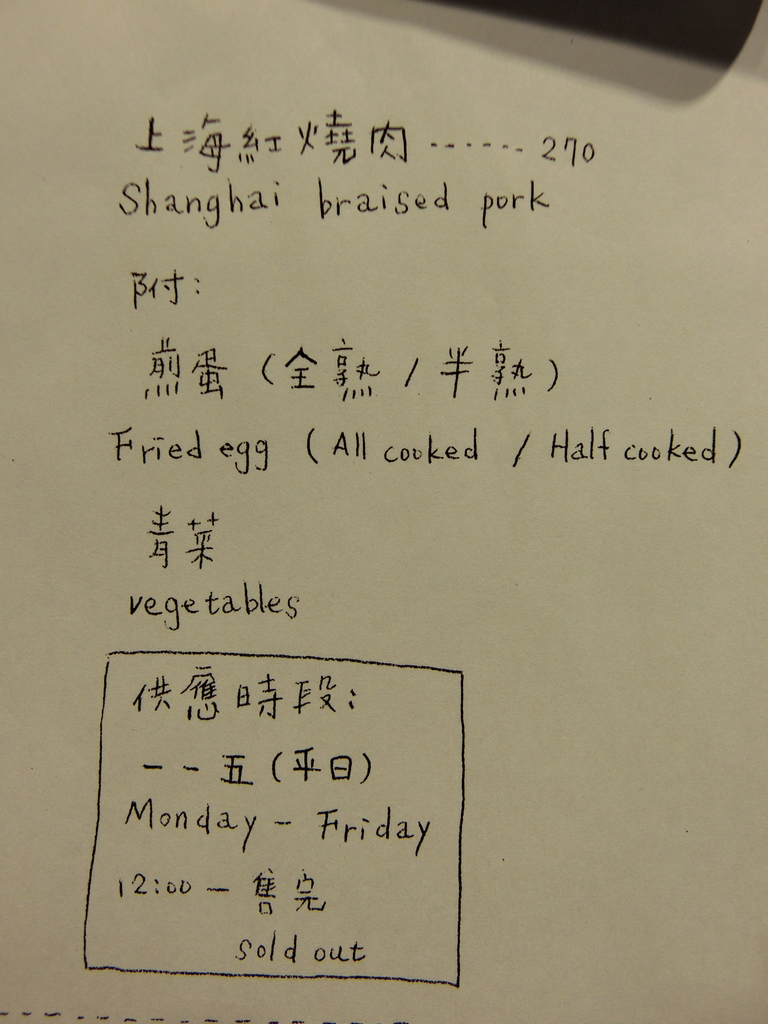 上海紅燒肉 ------ 270
Shanghai braised pork
附:
煎蛋 (全熟 / 半熟)
Fried egg (All cooked / Half cooked)
青菜
vegetables
供應時段:
一 - 五 (平日)
Monday - Friday
12:00 - 售完
sold out